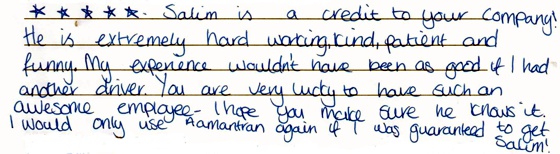 ★ ★ ★ ★ ★. Salim is a credit to your company!
He is extremely hard working, kind, patient and
funny. My experience wouldn't have been as good if I had
another driver. You are very lucky to have such an
awesome employee - I hope you make sure he knows it.
I would only use Aamantran again if I was guaranteed to get
Salim!